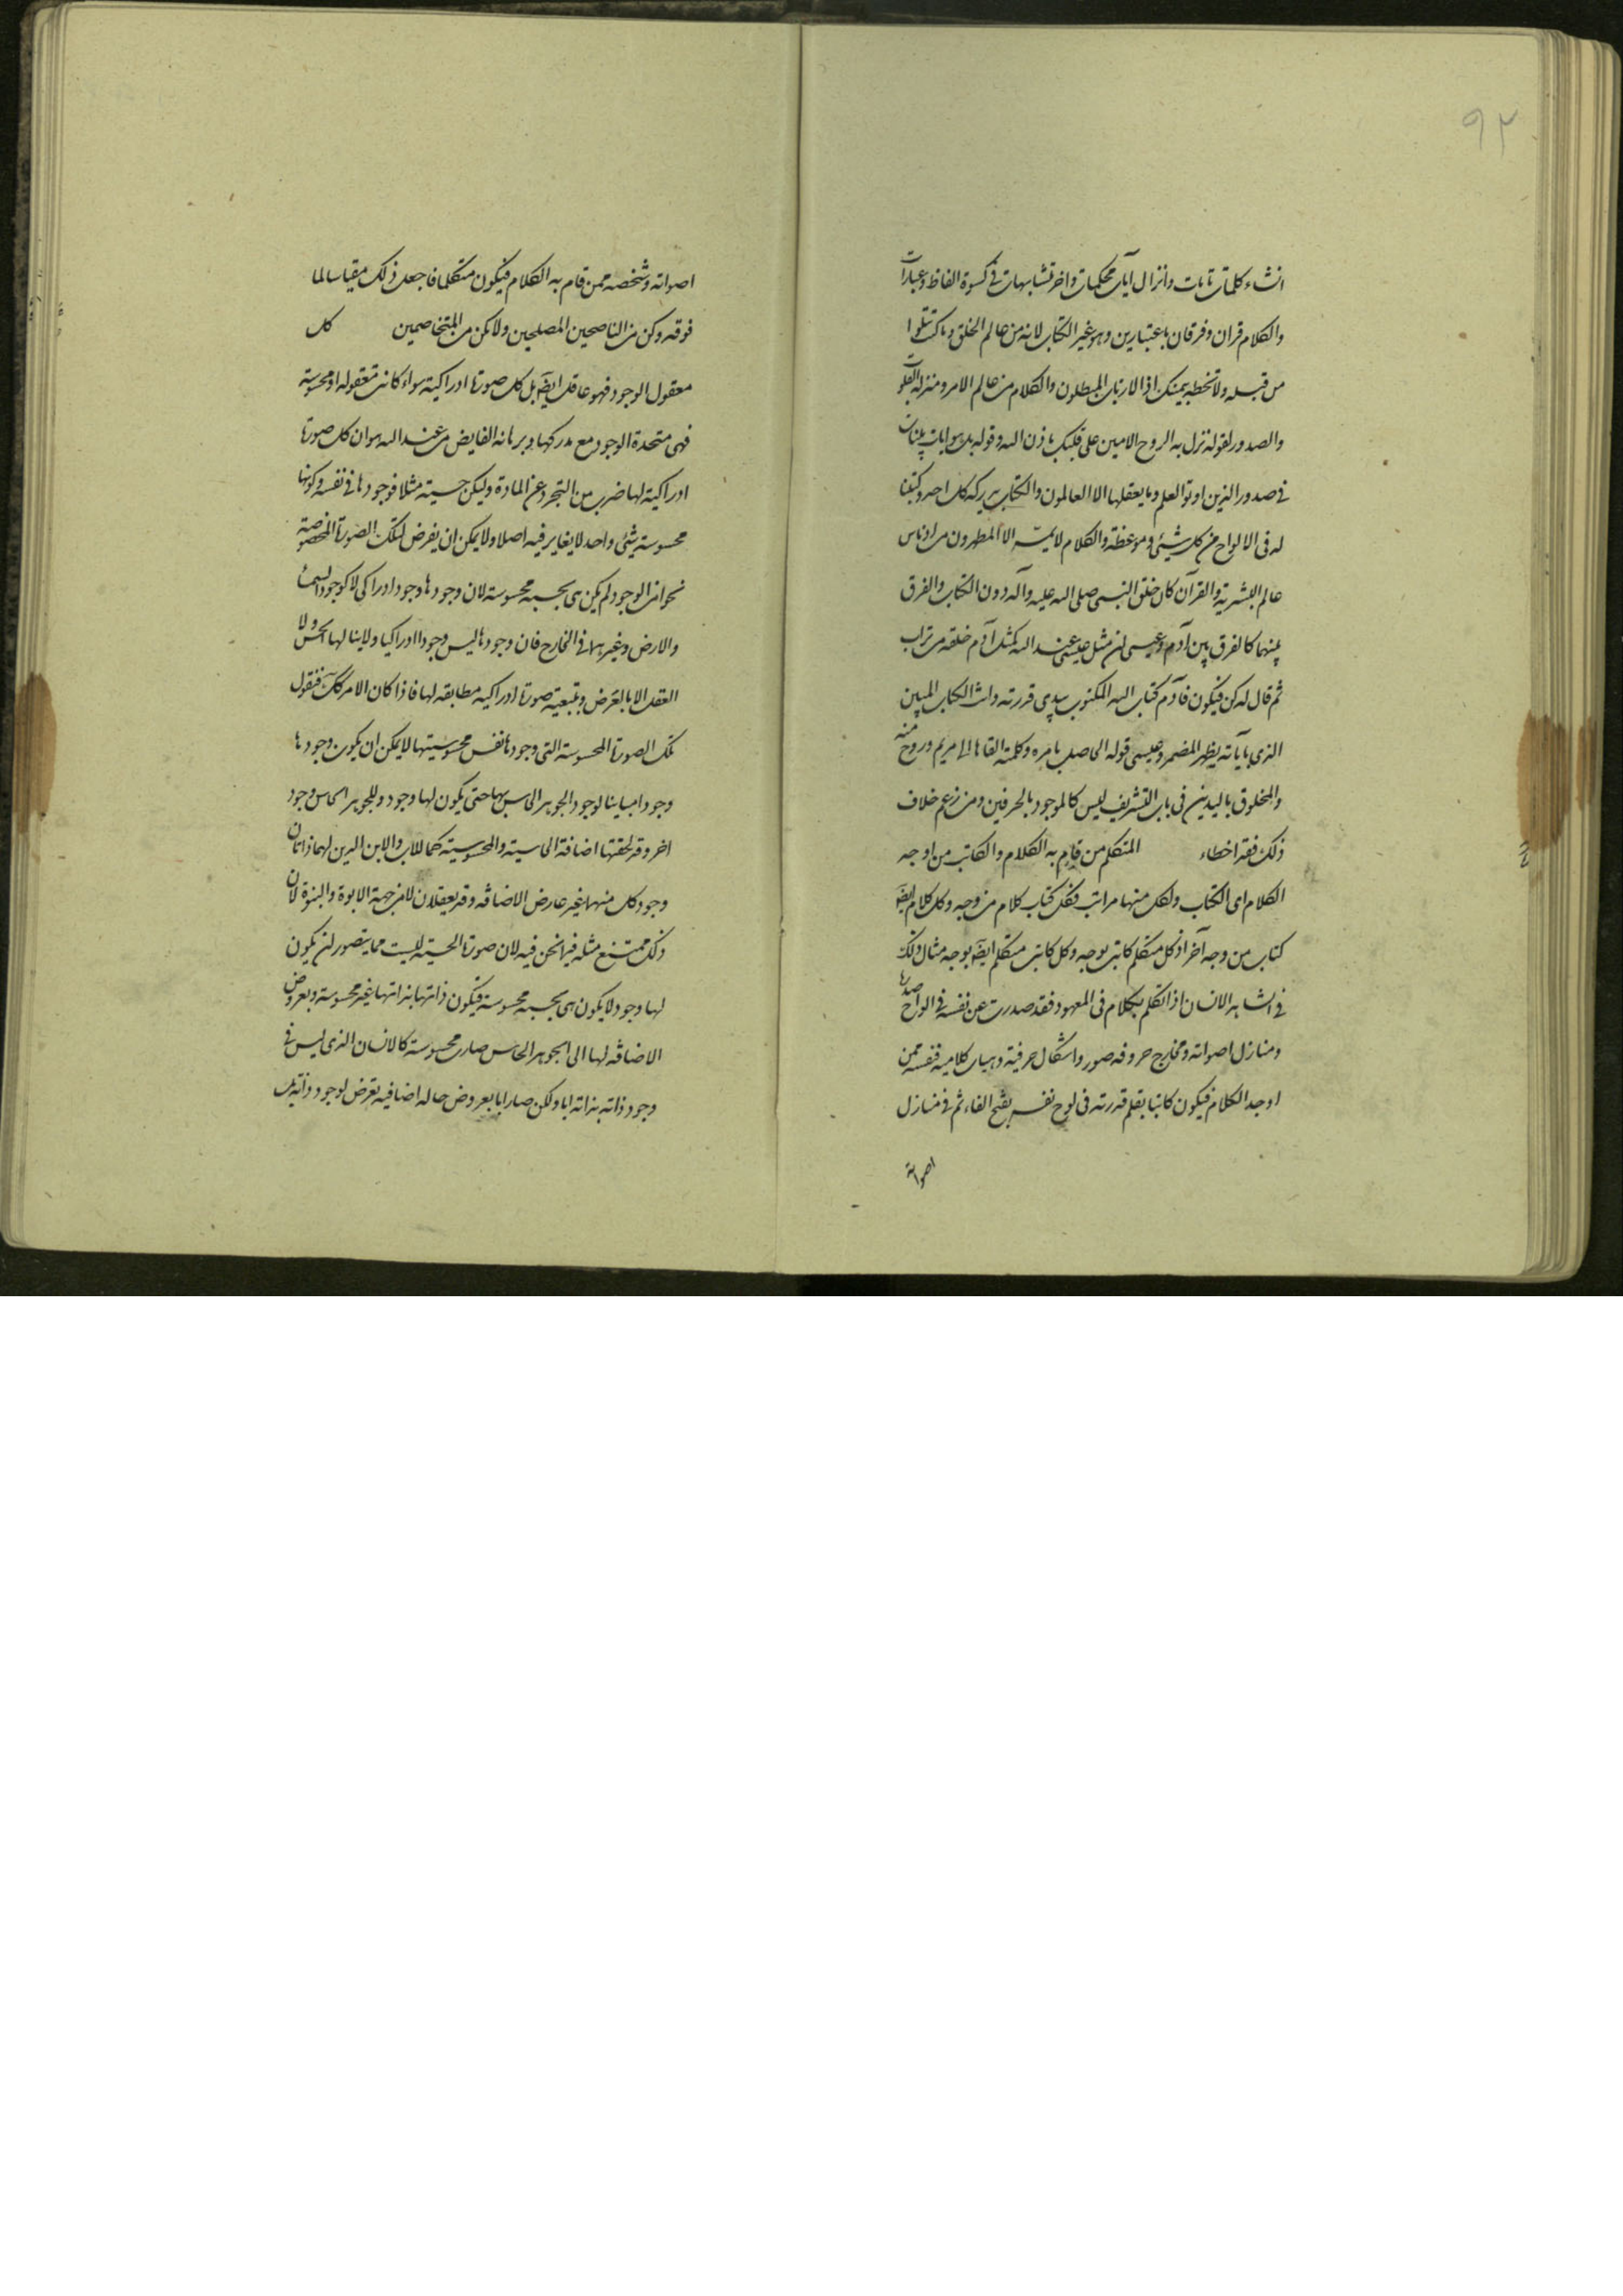 ٩٢
انشاء كلمات تامات وانزال آيات محكمات واخر متشابهات فى كسوة الفاظ وعبارات
والكلام قران وفرقان باعتبارين وهو غير الكتاب لانه من عالم الخلق وما كنت تتلوا
من قبله ولا تخطه بيمينك اذا لارتاب المبطلون والكلام من عالم الامر ومنزله القلوب
والصدور لقوله نزل به الروح الامين على قلبك باذن الله وقوله بل هو ايات بينات
فى صدور الذين اوتوا العلم وما يعقلها الا العالمون والكتاب يدركه كل احد وكتبنا
له فى الالواح من كل شيئى وموعظة والكلام لا يمسه الا المطهرون من ادناس
عالم البشرية والقرآن كان خلق النبى صلى الله عليه وآله دون الكتاب والفرق
بينهما كالفرق بين آدم وعيسى ان مثل عيسى عند الله كمثل آدم خلقه من تراب
ثم قال له كن فيكون فآدم كتاب الله المكتوب بيدى قدرته وانت الكتاب المبين
الذى بآياته يظهر المضمر وعيسى قوله الحاصل بامره وكلمة القاها الى مريم وروح منه
والمخلوق باليدين فى باب التشريف ليس كالموجود بالحرفين ومن زعم خلاف
ذلك فقد اخطاء المتكلم من قام به الكلام والكاتب من اوجد
الكلام اى الكتاب ولكل منهما مراتب فكل كتاب كلام من وجه وكل كلام ايضا
كتاب من وجه آخر اذ كل متكلم كاتب بوجه وكل كاتب متكلم ايضا بوجه مثال ذلك
فى الشاهد الانسان اذا تكلم بكلام فى المعهود فقد صدرت عن نفسه فى الواح صدره
ومنازل اصواته ومخارج حروفه صور واشكال حرفية وهيات كلامية فنفسه ممن
اوجد الكلام فيكون كاتبا بقلم قدرته فى لوح نفسه بفتح الفاء ثم فى منازل
اصواته
اصواته وشخصه ممن قام به الكلام فيكون متكلما فاجعل ذلك مقياسا لما
فوقه وكن من الناصحين المصلحين ولا تكن من المتخاصمين كل
معقول الوجود فهو عاقل ايضا بل كل صورة ادراكية سواء كانت معقولة او محسوسة
فهى متحدة الوجود مع مدركها وبرهانه الفايض من عند الله هو ان كل صورة
ادراكية لها ضرب من التجرد عن المادة وليكن حسية مثلا فوجودها فى نفسه وكونها
محسوسة شيئى واحد لا يغاير فيه اصلا ولا يمكن ان يفرض لتلك الصورة المخصوصة
نحو من الوجود لم يكن هى بحسبه محسوسة لان وجودها وجود ادراكى لا كوجود السماء
والارض وغيرهما فى الخارج فان وجودها ليس وجودا ادراكيا ولا ينالها الحس ولا
العقل الا بالعرض وبتبعية صورة ادراكيه مطابقه لها فاذا كان الامر كذلك فنقول
تلك الصورة المحسوسة التى وجودها نفس محسوسيتها لا يمكن ان يكون وجودها
وجودا مباينا لوجود الجوهر الحاس بها حتى يكون لها وجود وللجوهر الحاس وجود
اخر وقد لحقتها اضافة الحاسية والمحسوسية كما للاب والابن الذين لهما ذاتان
وجود كل منهما غير عارض الاضافه وقد يعقلان لا من جهة الابوة والبنوة لان
ذلك ممتنع مثله فيما نحن فيه لان صورة الحسية ليست مما يتصور ان يكون
لها وجود لا يكون هى بحسبه محسوسة فيكون ذاتها بذاتها غير محسوسة وبعروض
الاضافه لها الى الجوهر الحاس صارت محسوسة كالانسان الذى ليس فى
وجود ذاته بذاته ابا ولكن صار ابا بعروض حاله اضافيه تعرض لوجود ذاته بل